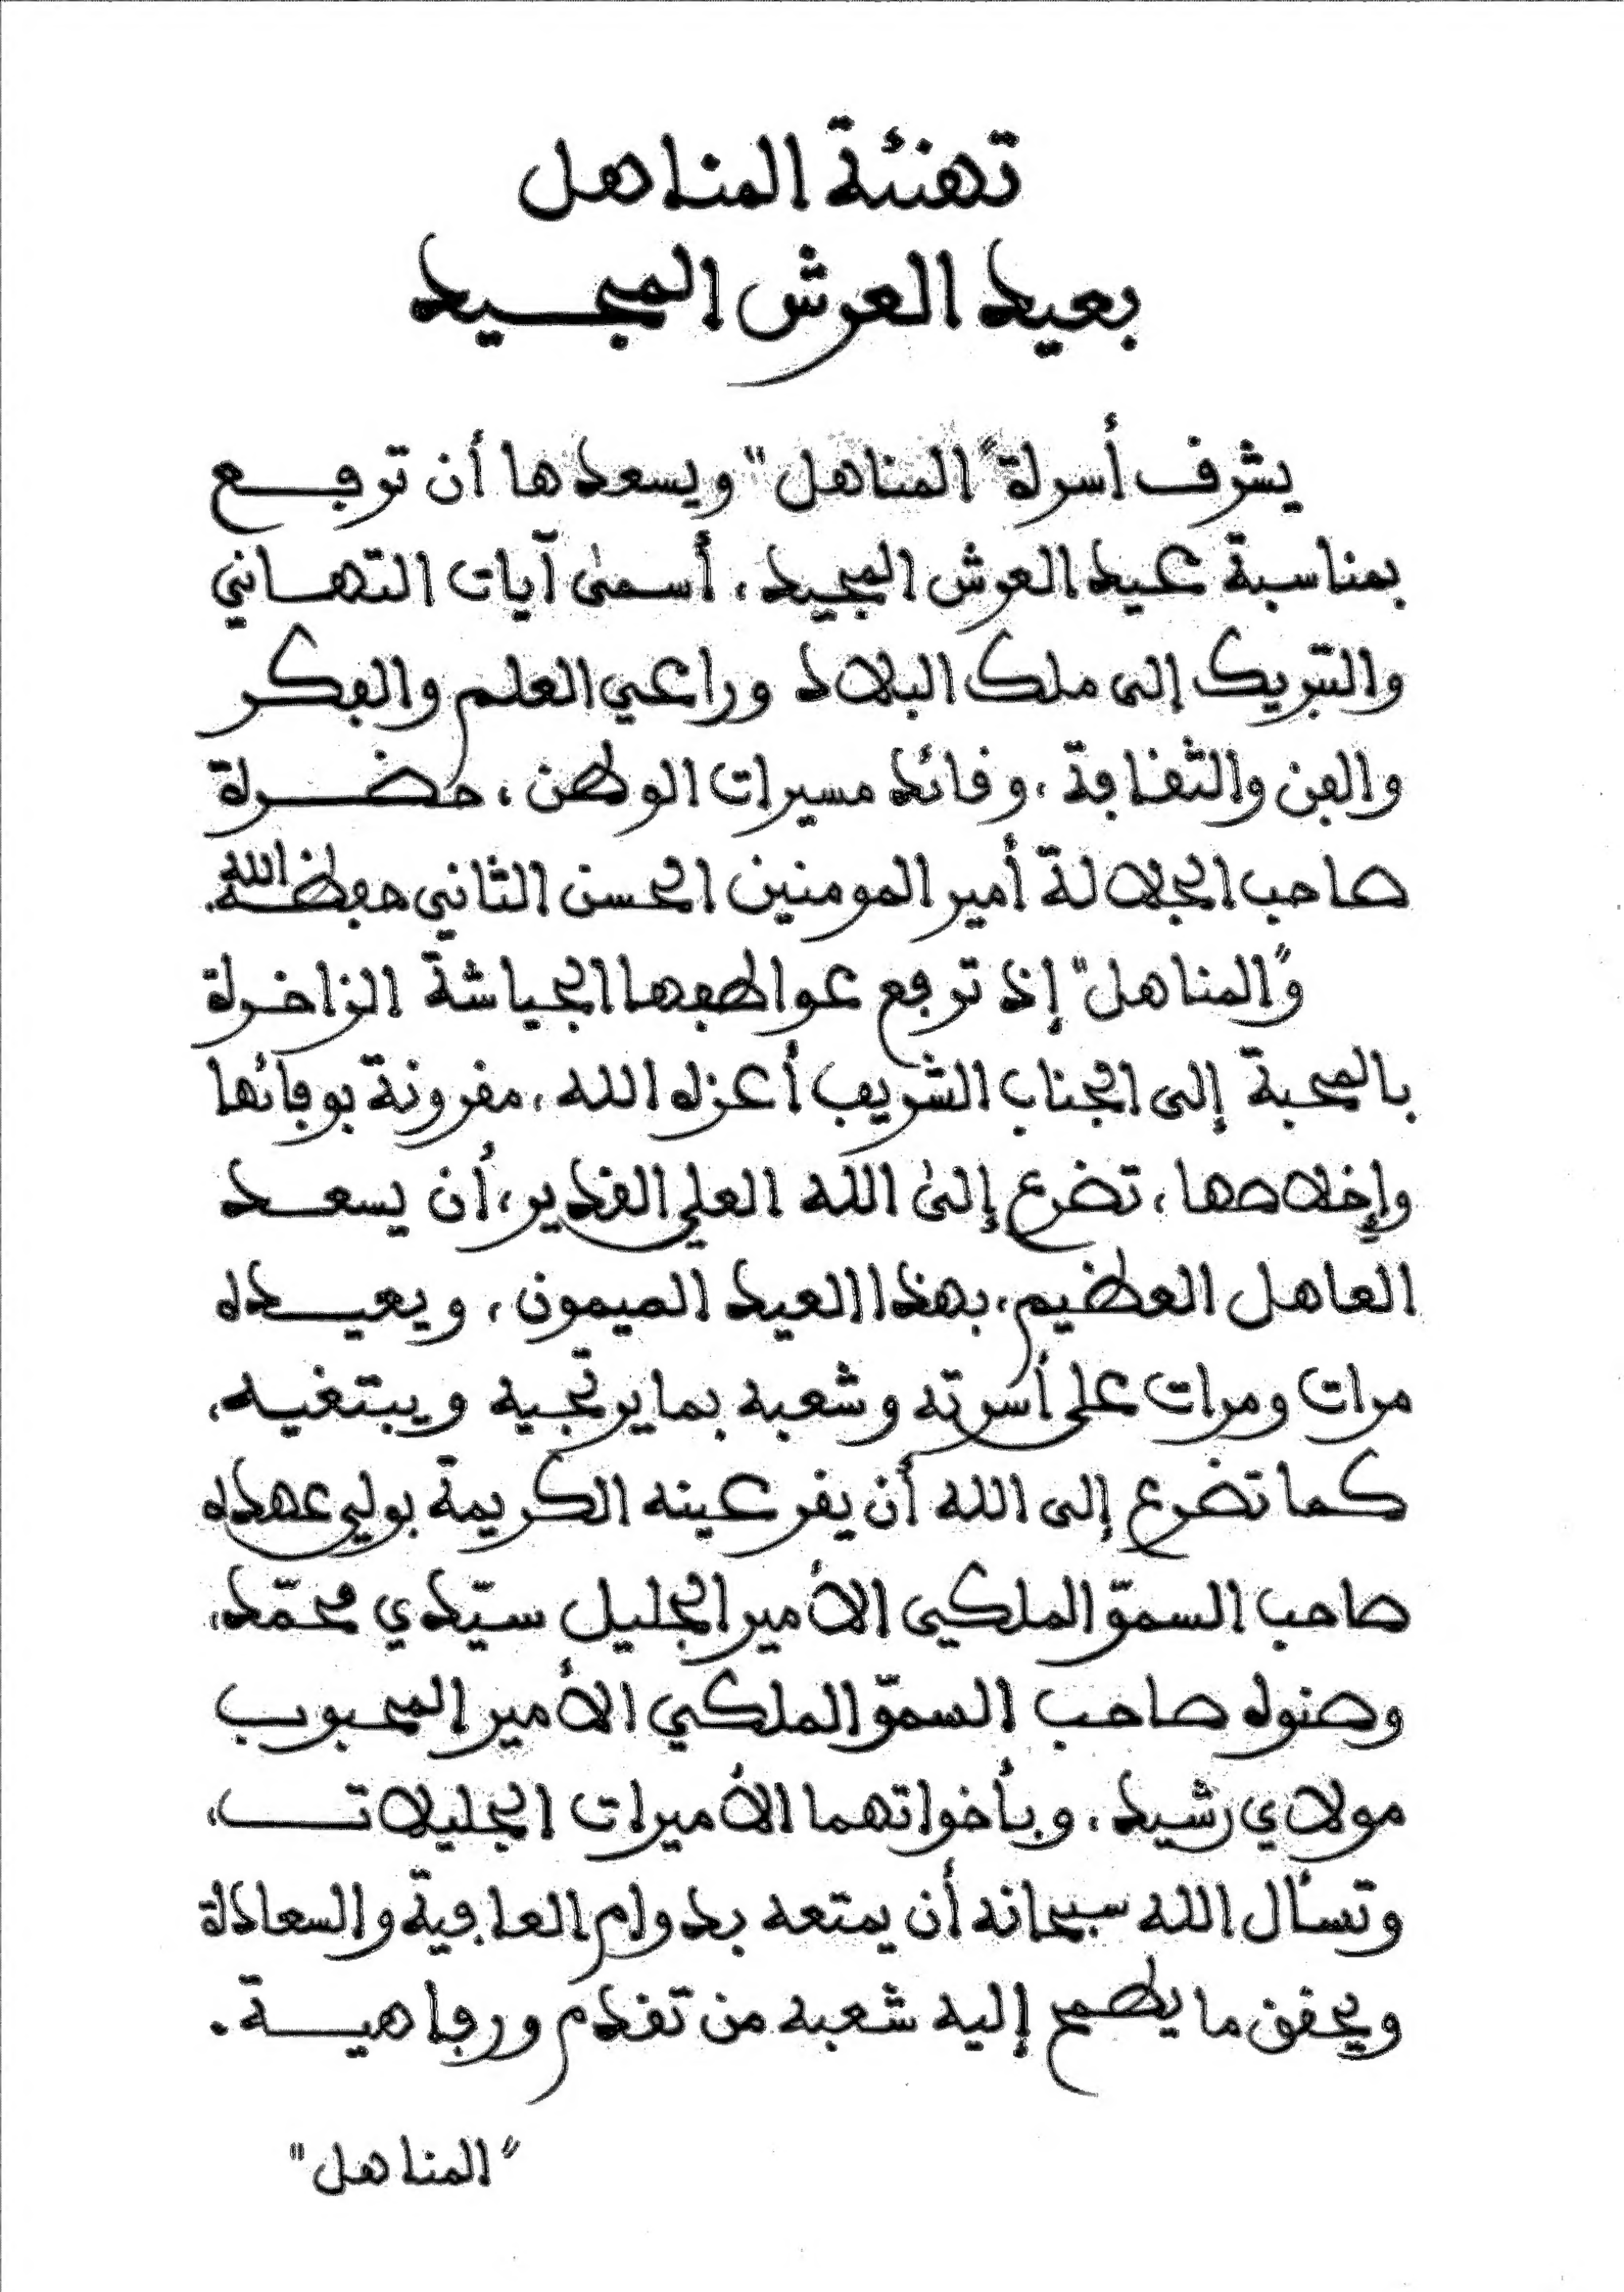 تهنئة المناهل
بعيد العرش المجيد
يشرف أسرة "المناهل" ويسعدها أن ترفع
بمناسبة عيد العرش المجيد، أسمى آيات التهاني
والتبريك إلى ملك البلاد وراعي العلم والفكر
والفن والثقافة، وقائد مسيرات الوطن، حضرة
صاحب الجلالة أمير المومنين الحسن الثاني حفظه الله.
و"المناهل" إذ ترفع عواطفها الجياشة الزاخرة
بالمحبة إلى الجناب الشريف أعزه الله، مقرونة بوفائها
وإخلاصها، تضرع إلى الله العلي القدير، أن يسعد
العاهل العظيم، بهذا العيد الميمون، ويعيده
مرات ومرات على أسرته وشعبه بما يرتجيه ويبتغيه،
كما تضرع إلى الله أن يقر عينه الكريمة بولي عهده
صاحب السموّ الملكي الأمير الجليل سيّدي محمّد،
وصنوه صاحب السموّ الملكي الأمير المحبوب
مولاي رشيد، وبأخواتهما الأميرات الجليلات،
وتسأل الله سبحانه أن يمتعه بدوام العافية والسعادة
ويحقق ما يطمح إليه شعبه من تقدم ورفاهية.
"المناهل"